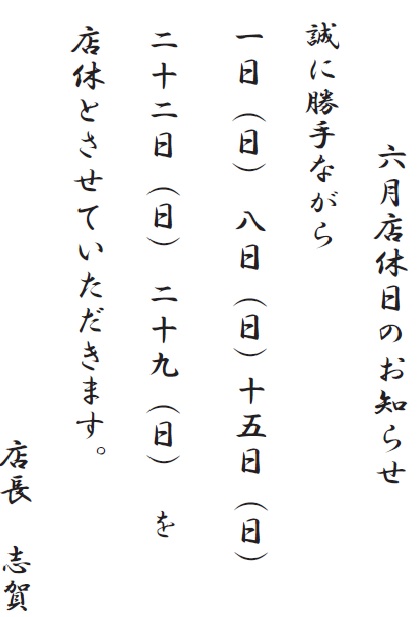 六月店休日のお知らせ
誠に勝手ながら
一日（日）　八日（日）十五日（日）
二十二日（日）　二十九（日）　を
店休とさせていただきます。
店長　志賀